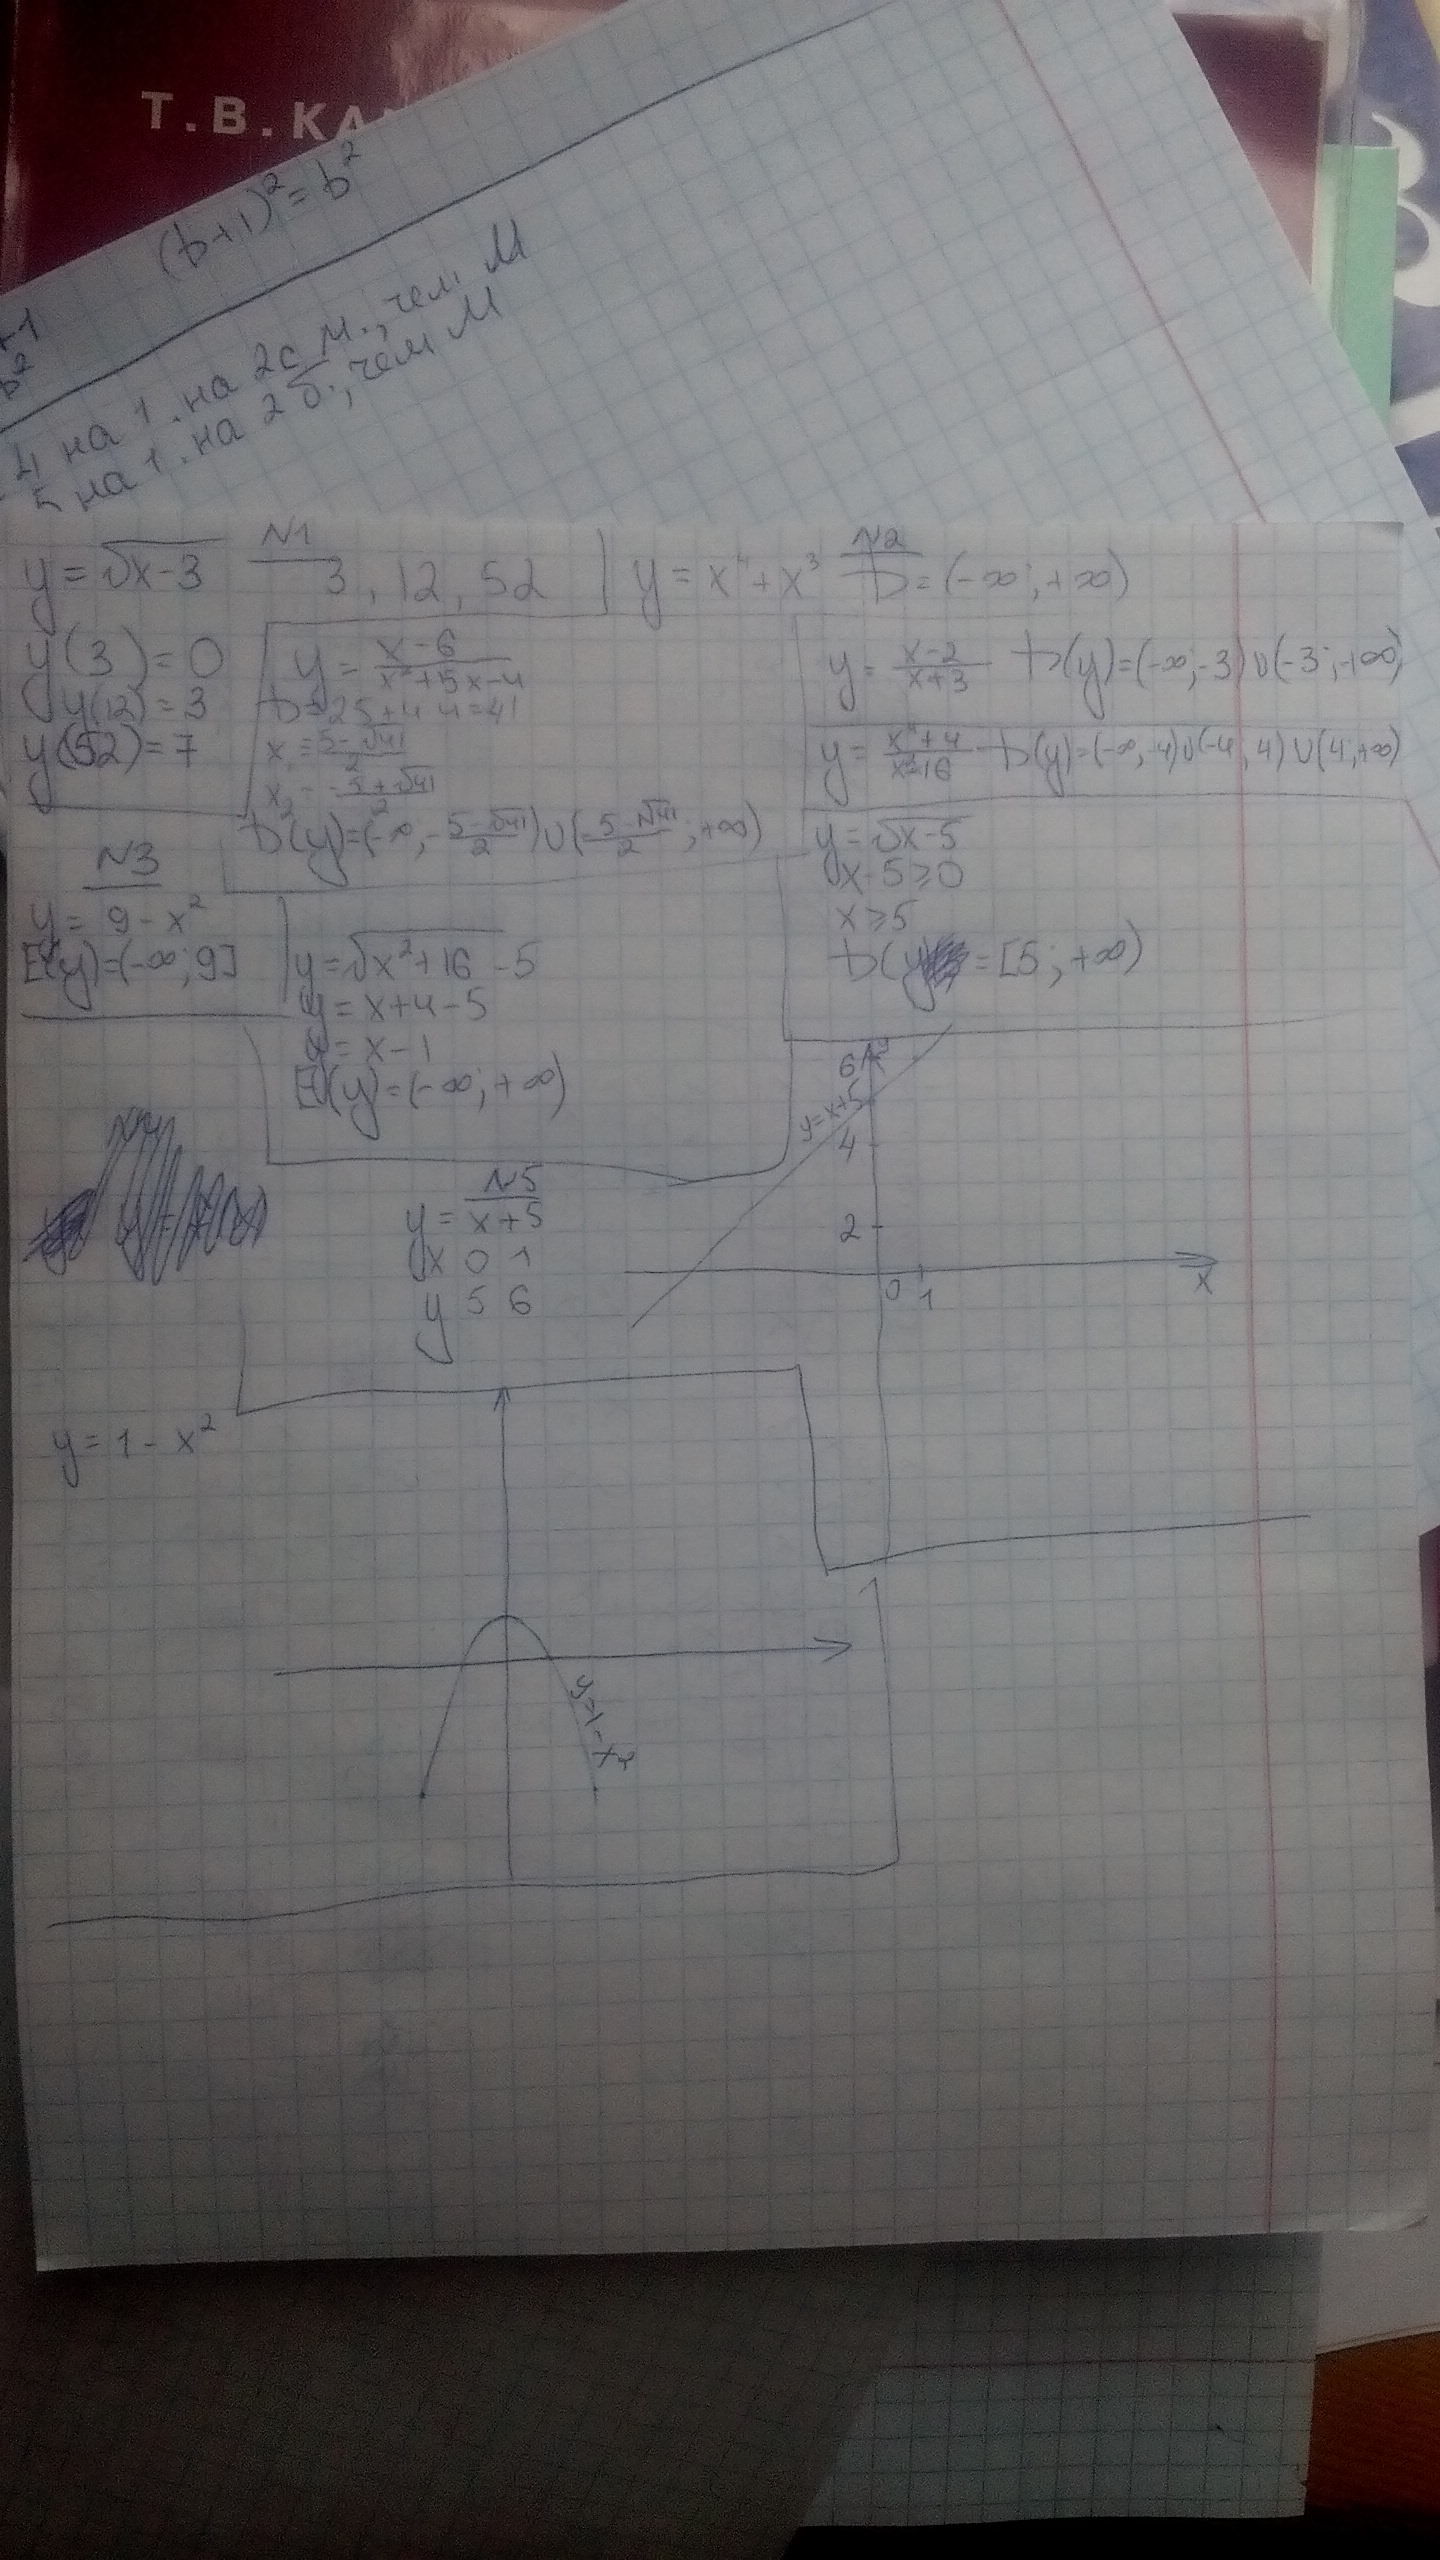 Т.В.КА
(b+1)²=b²
+1
b²
4 на 1. на 2с м., чем М
5 на 1. на 2 б., чем М
N1
y=√x-3 3, 12, 52
y(3)=0
y(12)=3
y(52)=7
N2
y=x⁴+x³ D=(-∞;+∞)
y=x-6/x²+5x-4
D=25+4·4=41
x₁=5-√41/2
x₂=-5+√41/2
D(y)=(-∞,-5-√41/2)∪(-5-√41/2;+∞)
y=x-2/x+3 D(y)=(-∞;-3)∪(-3;+∞)
y=x⁴+4/x²-16 D(y)=(-∞,-4)∪(-4,4)∪(4;+∞)
y=√x-5
x-5≥0
x≥5
D(y =[5;+∞)
N3
y=9-x²
E(y)=(-∞;9]
y=√x²+16-5
y=x+4-5
y=x-1
E(y)=(-∞;+∞)
N5
y=x+5
x 0 1
y 5 6
6 y
y=x+5
4
2
0 1 x
y=1-x²
y=1-x²